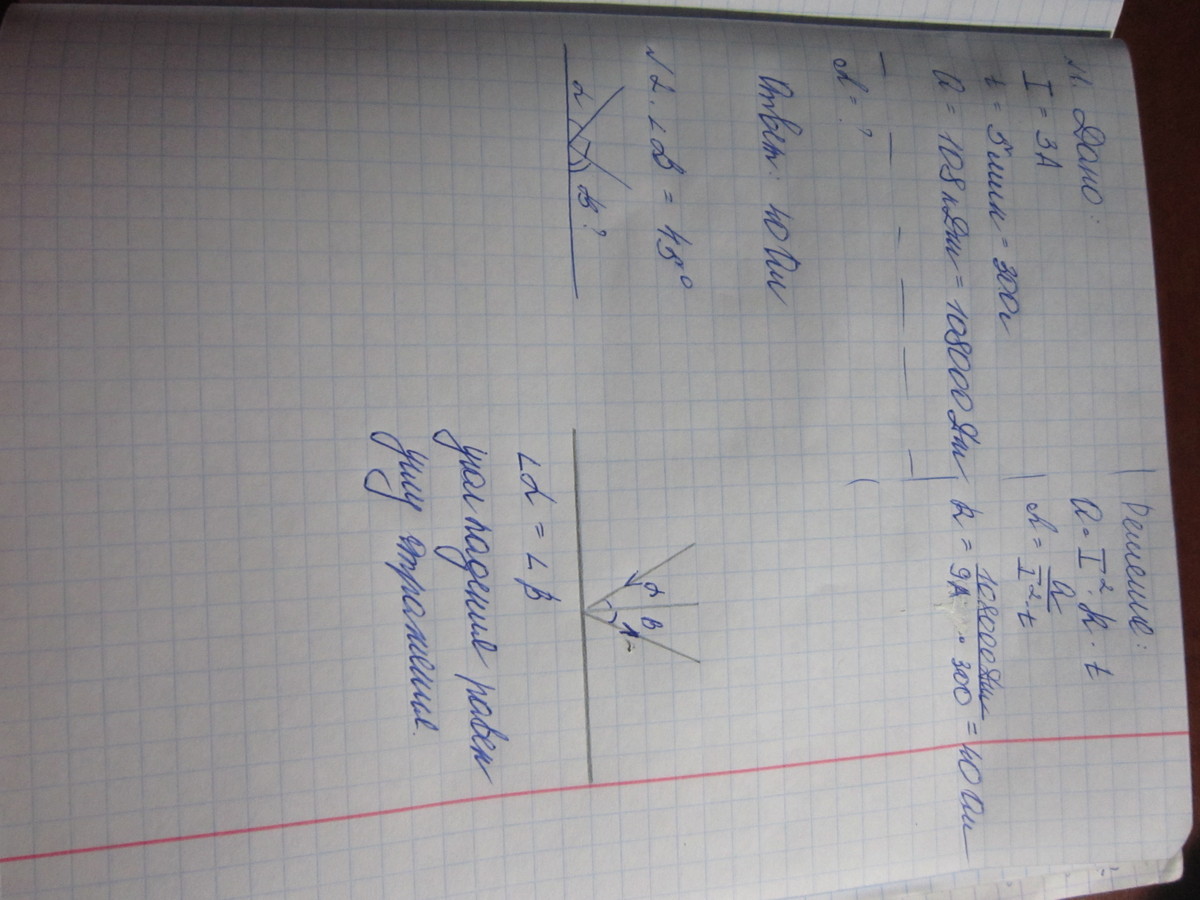 №1. Дано:
I = 3А
t = 5 мин = 300с
Q = 108 кДж = 108000 Дж
R = ?
Решение:
Q = I². R · t
R = Q / I² · t
R = 108000 Дж / 9А · 300 = 40 Ом
Ответ: 40 Ом
√2. ∠B = 45°
α B?
α B
∠α = ∠β
угол падения равен
углу отражения.